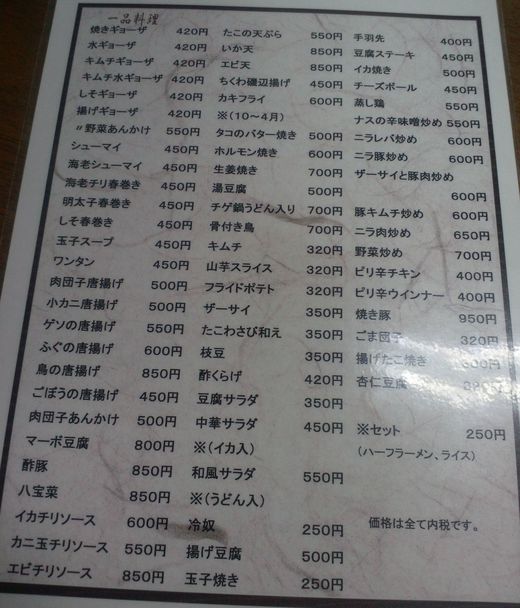 一品料理
焼きギョーザ 420円
水ギョーザ 420円
キムチギョーザ 420円
キムチ水ギョーザ 420円
しそギョーザ 420円
揚げギョーザ 420円
〃野菜あんかけ 550円
シューマイ 450円
海老シューマイ 450円
海老チリ春巻き 450円
明太子春巻き 450円
しそ春巻き 450円
玉子スープ 450円
ワンタン 450円
肉団子唐揚げ 500円
小カニ唐揚げ 500円
ゲソの唐揚げ 550円
ふぐの唐揚げ 600円
鳥の唐揚げ 850円
ごぼうの唐揚げ 450円
肉団子あんかけ 500円
マーボ豆腐 800円
酢豚 850円
八宝菜 850円
イカチリソース 600円
カニ玉チリソース 550円
エビチリソース 850円
たこの天ぷら 550円
いか天 850円
エビ天 850円
ちくわ磯辺揚げ 450円
カキフライ 600円
※(10〜4月)
タコのバター焼き 500円
ホルモン焼き 600円
生姜焼き 700円
湯豆腐 500円
チゲ鍋うどん入り 700円
骨付き鳥 700円
キムチ 320円
山芋スライス 320円
フライドポテト 320円
ザーサイ 350円
たこわさび和え 350円
枝豆 350円
酢くらげ 420円
豆腐サラダ 350円
中華サラダ 450円
※(イカ入)
和風サラダ 550円
※(うどん入)
冷奴 250円
揚げ豆腐 500円
玉子焼き 250円
手羽先 400円
豆腐ステーキ 450円
イカ焼き 500円
チーズボール 450円
蒸し鶏 550円
ナスの辛味噌炒め 550円
ニラレバ炒め 600円
ニラ豚炒め 600円
ザーサイと豚肉炒め
600円
豚キムチ炒め 600円
ニラ肉炒め 650円
野菜炒め 700円
ピリ辛チキン 400円
ピリ辛ウインナー 400円
焼き豚 950円
ごま団子 320円
揚げたこ焼き
杏仁豆腐
※セット 250円
(ハーフラーメン、ライス)
価格は全て内税です。